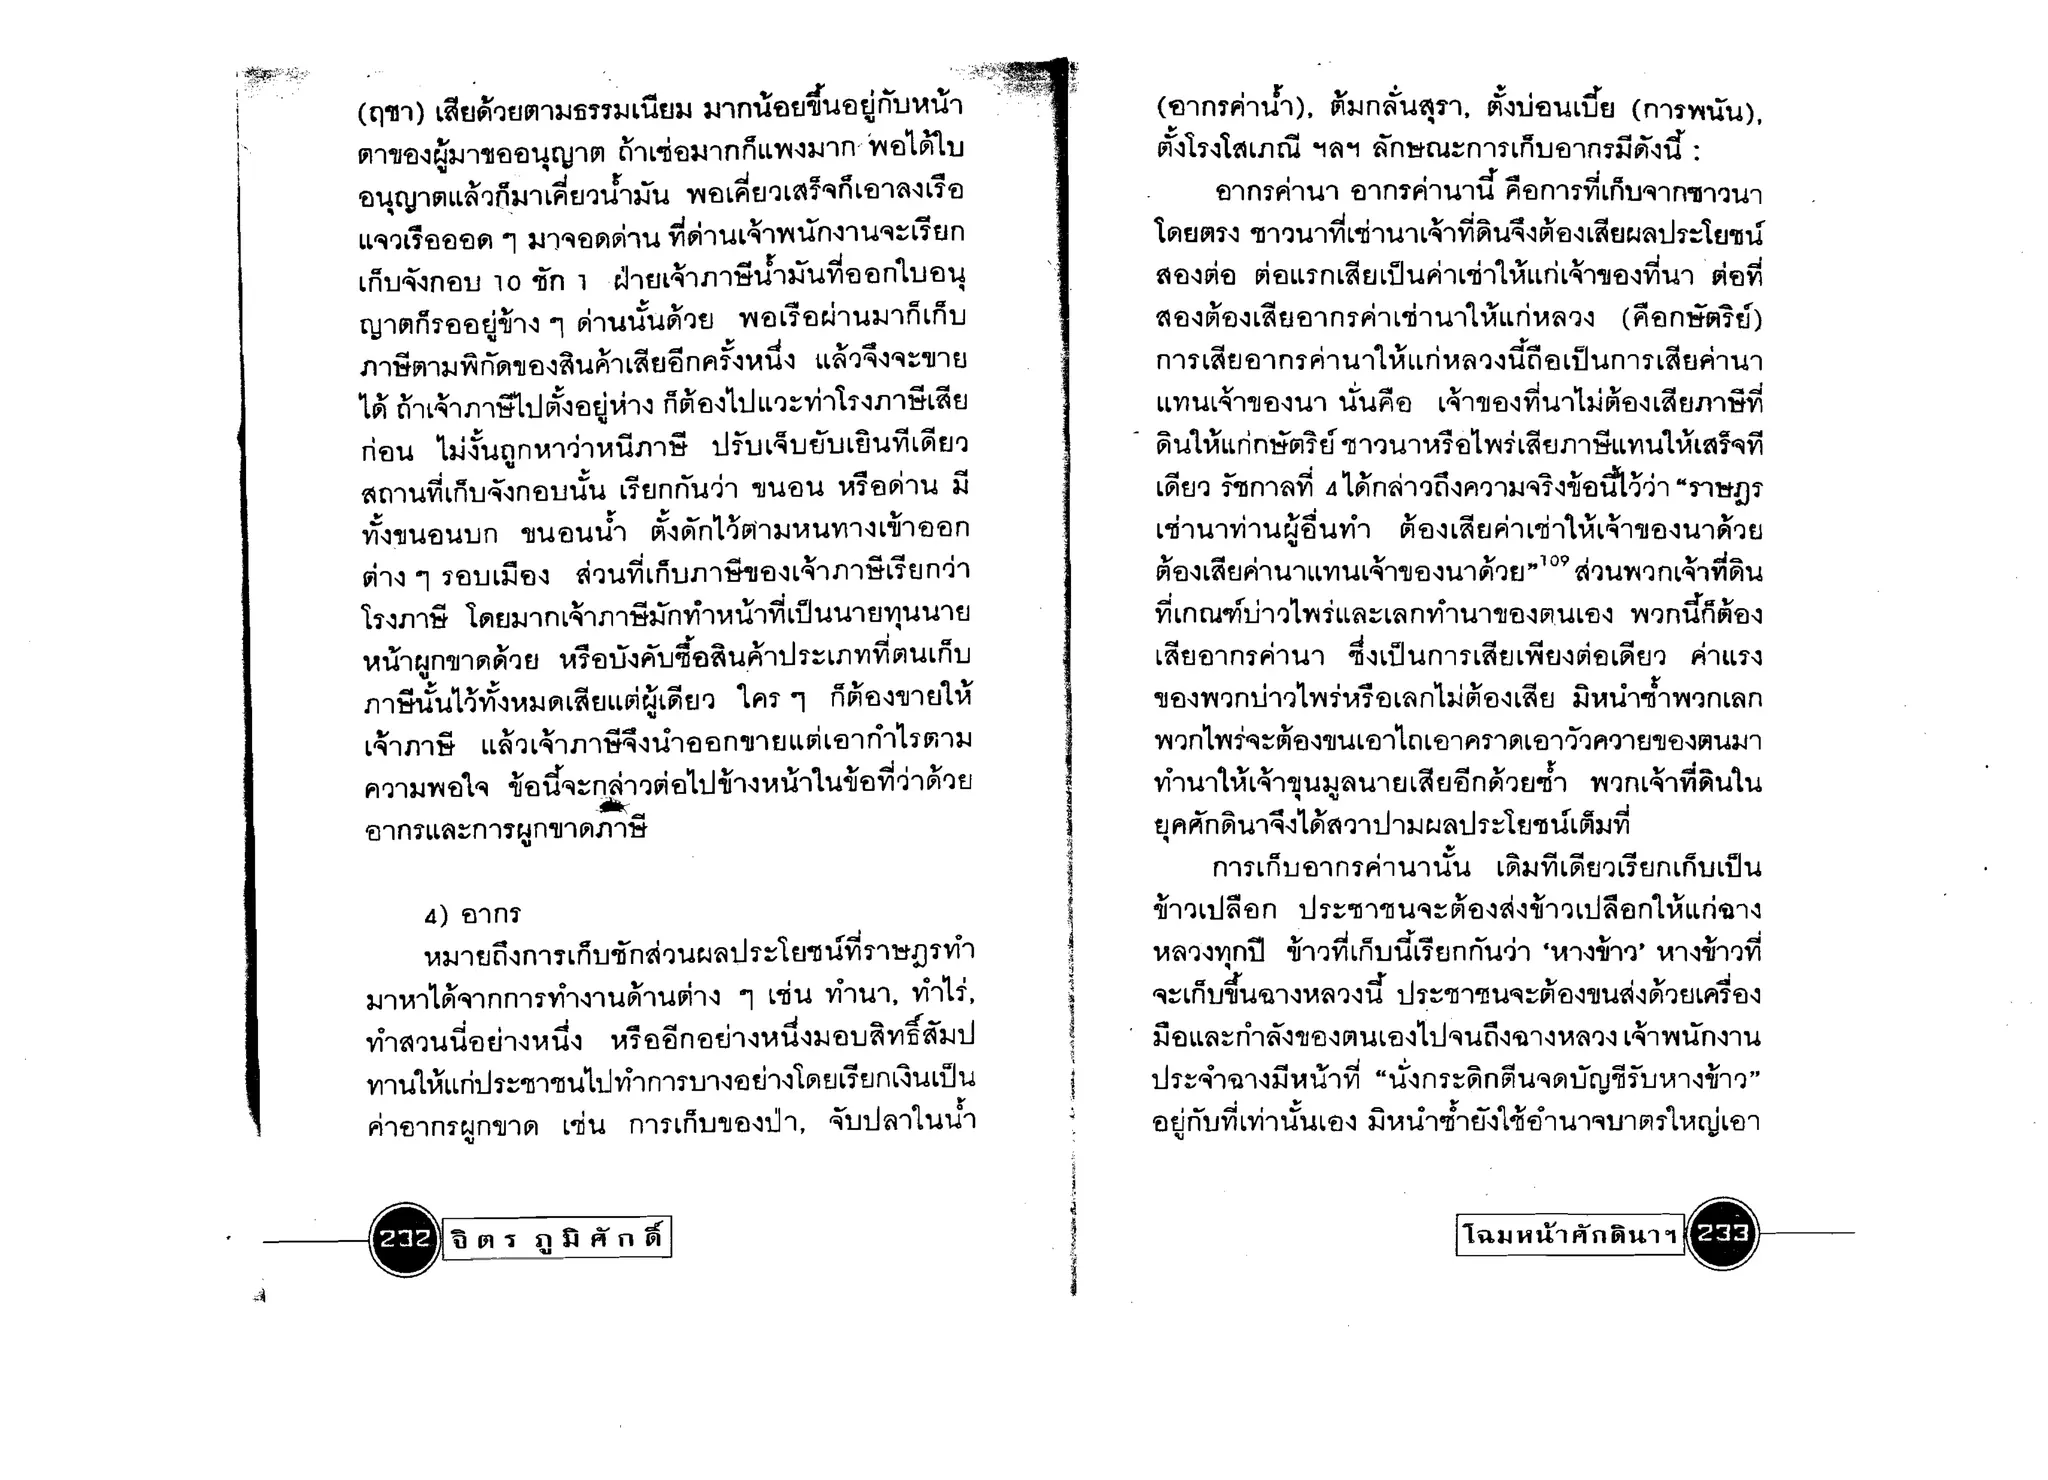 (ฤชา) เสียด้วยตามธรรมเนียม มากน้อยขึ้นอยู่กับหน้า
ตาของผู้มาขออนุญาต ถ้าเซ่อมากก็แพงมาก พอได้ใบ
อนุญาตแล้วก็มาเคี่ยวน้ำมัน พอเคี่ยวเสร็จก็เอาลงเรือ
แจวเรือออด ๆ มาจอดด่าน ที่ด่านเจ้าพนักงานจะเรียก
เก็บจังกอบ 10 ชัก 1 ฝ่ายเจ้าภาษีน้ำมันที่ออกใบอนุ
ญาตก็รออยู่ข้าง ๆ ด่านนั้นด้วย พอเรือผ่านมาก็เก็บ
ภาษีตามพิกัดของสินค้าเสียอีกครั้งหนึ่ง แล้วจึงจะขาย
ได้ ถ้าเจ้าภาษีไปตั้งอยู่ห่าง ก็ต้องไปแวะท่าโรงภาษีเสีย
ก่อน ไม่งั้นถูกหาว่าหนีภาษี ปรับเจ็บยับเยินทีเดียว
สถานที่เก็บจังกอบนั้น เรียกกันว่า ขนอน หรือด่าน มี
ทั้งขนอนบก ขนอนน้ำ ตั้งดักไว้ตามหนทางเข้าออก
ต่าง ๆ รอบเมือง ส่วนที่เก็บภาษีของเจ้าภาษีเรียกว่า
โรงภาษี โดยมากเจ้าภาษีมักทำหน้าที่เป็นนายทุนนาย
หน้าผูกขาดด้วย หรือบังคับซื้อสินค้าประเภทที่ตนเก็บ
ภาษีนั้นไว้ทั้งหมดเสียแต่ผู้เดียว ใคร ๆ ก็ต้องขายให้
เจ้าภาษี แล้วเจ้าภาษีจึงนำออกขายแต่เอากำไรตาม
ความพอใจ ข้อนี้จะกล่าวต่อไปข้างหน้าในข้อที่ว่าด้วย
อากรและการผูกขาดภาษี
4) อากร
หมายถึงการเก็บชักส่วนผลประโยชน์ที่ราษฎรทำ
มาหาได้จากการทำงานด้านต่าง ๆ เช่น ทำนา, ทำไร่,
ทำสวนนี่อย่างหนึ่ง หรืออีกอย่างหนึ่งมอบสิทธิ์สัมป
ทานให้แก่ประชาชนไปทำการบางอย่างโดยเรียกเงินเป็น
ค่าอากรผูกขาด เช่น การเก็บของป่า, จับปลาในน้ำ
232 จิตร ภูมิศักดิ์
(อากรค่าน้ำ), ต้มกลั่นสุรา, ตั้งบ่อนเบี้ย (การพนัน),
ตั้งโรงโสเภณี ฯลฯ ลักษณะการเก็บอากรมีดังนี้ :
อากรค่านา อากรค่านานี้ คือการที่เก็บจากชาวนา
โดยตรง ชาวนาที่เช่านาเจ้าที่ดินจึงต้องเสียผลประโยชน์
สองต่อ ต่อแรกเสียเป็นค่าเช่าให้แก่เจ้าของที่นา ต่อที่
สองต้องเสียอากรค่าเช่านาให้แก่หลวง (คือกษัตริย์)
การเสียอากรค่านาให้แก่หลวงนี้ถือเป็นการเสียค่านา
แทนเจ้าของนา นั่นคือ เจ้าของที่นาไม่ต้องเสียภาษีที่
ดินให้แก่กษัตริย์ ชาวนาหรือไพร่เสียภาษีแทนให้เสร็จที
เดียว รัชกาลที่ 4 ได้กล่าวถึงความจริงข้อนี้ไว้ว่า “ราษฎร
เช่านาท่านผู้อื่นทำ ต้องเสียค่าเช่าให้เจ้าของนาด้วย
ต้องเสียค่านาแทนเจ้าของนาด้วย”109 ส่วนพวกเจ้าที่ดิน
ที่เกณฑ์บ่าวไพร่และเลกทำนาของตนเอง พวกนี้ก็ต้อง
เสียอากรค่านา ซึ่งเป็นการเสียเพียงต่อเดียว ค่าแรง
ของพวกบ่าวไพร่หรือเลกไม่ต้องเสีย มิหนำซ้ำพวกเลก
พวกไพร่จะต้องขนเอาไถเอาคราดเอาวัวควายของตนมา
ทำนาให้เจ้าขุนมูลนายเสียอีกด้วยซ้ำ พวกเจ้าที่ดินใน
ยุคศักดินาจึงได้สวาปามผลประโยชน์เต็มที่
การเก็บอากรค่านานั้น เดิมทีเดียวเรียกเก็บเป็น
ข้าวเปลือก ประชาชนจะต้องส่งข้าวเปลือกให้แก่ฉาง
หลวงทุกปี ข้าวที่เก็บนี้เรียกกันว่า ‘หางข้าว’ หางข้าวที่
จะเก็บขึ้นฉางหลวงนี้ ประชาชนจะต้องขนส่งด้วยเครื่อง
มือและกำลังของตนเองไปจนถึงฉางหลวง เจ้าพนักงาน
ประจำฉางมีหน้าที่ “นั่งกระดิกตีนจดบัญชีรับหางข้าว”
อยู่กับที่เท่านั้นเอง มิหนำซ้ำยังใช้อำนาจบาตรใหญ่เอา
โฉมหน้าศักดินาฯ 233